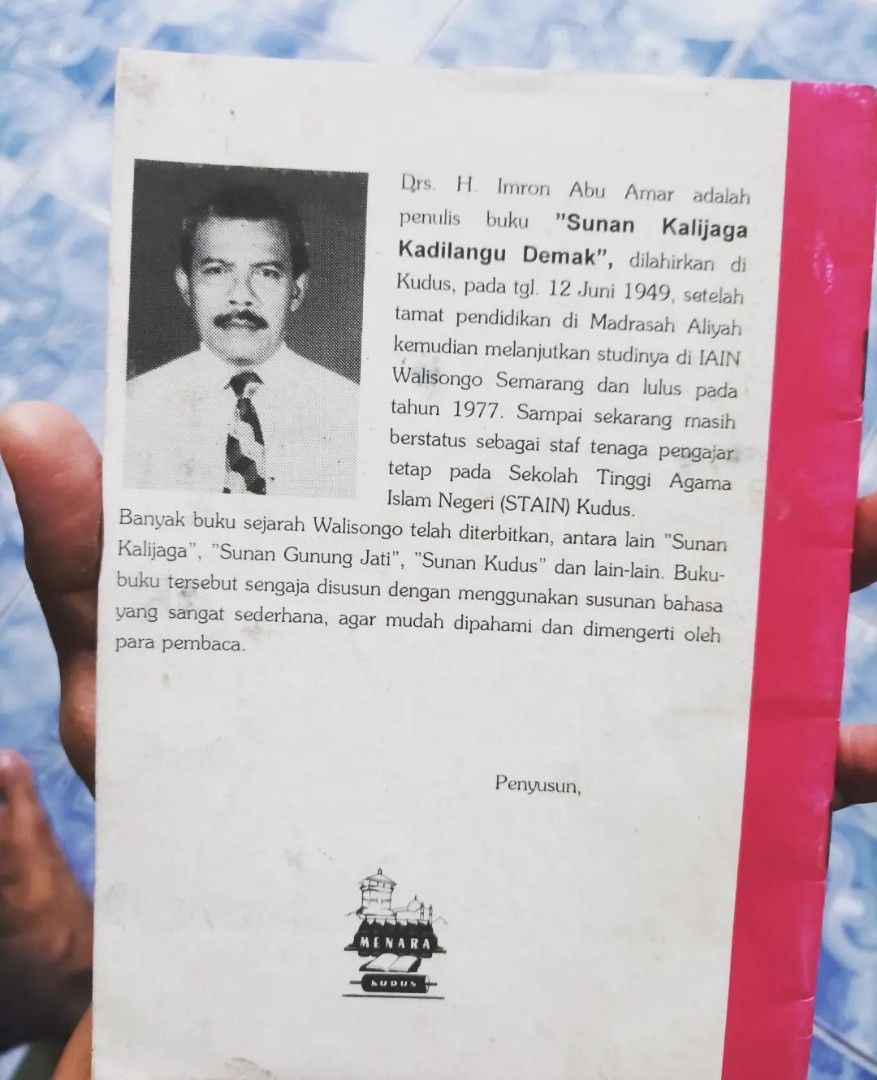 Drs. H. Imron Abu Amar adalah
penulis buku "Sunan Kalijaga
Kadilangu Demak", dilahirkan di
Kudus, pada tgl. 12 Juni 1949, setelah
tamat pendidikan di Madrasah Aliyah
kemudian melanjutkan studinya di IAIN
Walisongo Semarang dan lulus pada
tahun 1977. Sampai sekarang masih
berstatus sebagai staf tenaga pengajar
tetap pada Sekolah Tinggi Agama
Islam Negeri (STAIN) Kudus.
Banyak buku sejarah Walisongo telah diterbitkan, antara lain "Sunan
Kalijaga", "Sunan Gunung Jati", "Sunan Kudus" dan lain-lain. Buku-
buku tersebut sengaja disusun dengan menggunakan susunan bahasa
yang sangat sederhana, agar mudah dipahami dan dimengerti oleh
para pembaca.
Penyusun,
MENARA
KUDUS